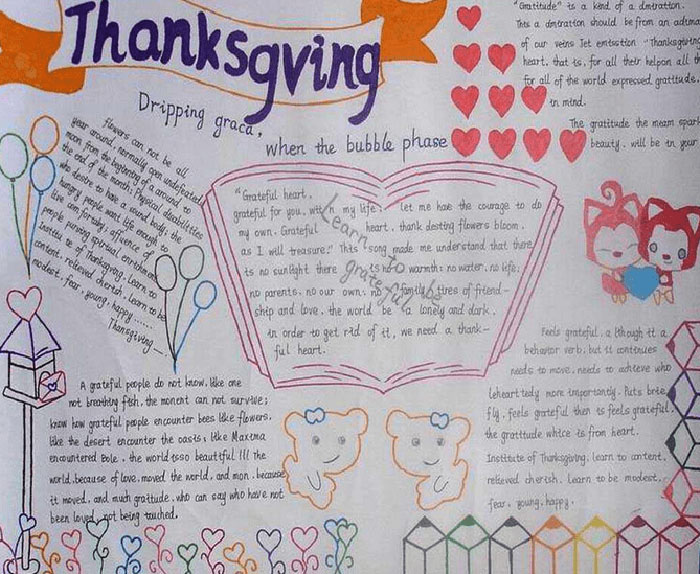 Thanksgving
Dripping graca,
when the bubble phase
"Gratitude" is a kind of a dmtration.
This a dmtration should be from an
of our veins Jet emtsstion "Thanksgiving
heart, that is, for all their helpon all
for all of the world expressed gratitude.
in mind.
The gratitude the meam spark
beauty. will be in your
flowers can not be all
year around, normally upon undefeated
moon, from the beginning of a around to
the end of the month; Physical disabilities
who desire to have a sound body; the
hungry people want life enough to
live on, for tidy; affluence of
people purwing spiritual enrichment
Institu te of Thanksgiving. Learn to
content, relieved cherish. Learn to be
modest, fear, young, happy......
Thanksgiving......
"Grateful heart.
grateful for you. with n my life. Let me have the courage to do
my own. Grateful heart. thank desting flowers bloom.
as I will treasure." This song made me understand that there
is no sunlight there is no warmth: no water, no life;
no parents, no our own; no family tires of friend-
ship and love, the world be a lonely and dark.
in order to get rad of it, we need a thank-
ful heart.
Learn to be
grateful
A grateful people do not know, like one
not breathing fish, the monent can not survive;
know how grateful people encounter bees like flowers.
like the desert encounter the oasts; like Maxtma
encountered Bole. the world isso beautiful !!! The
world.because of love. moved the world, and mon. because
it moved. and much gratitude. who can say who have not
been loved, not being touched.
Feels grateful. a lthough it a
behavior verb. but it continues
needs to move. needs to achteve who
leheart tedly more importantly. Puts brie
fly. feels grateful then is feels grateful.
the gratttude whtce is from heart.
Institute of Thanksgiving. learn to content.
relieved chertsh. Learn to be modest.
fear. young. happy.